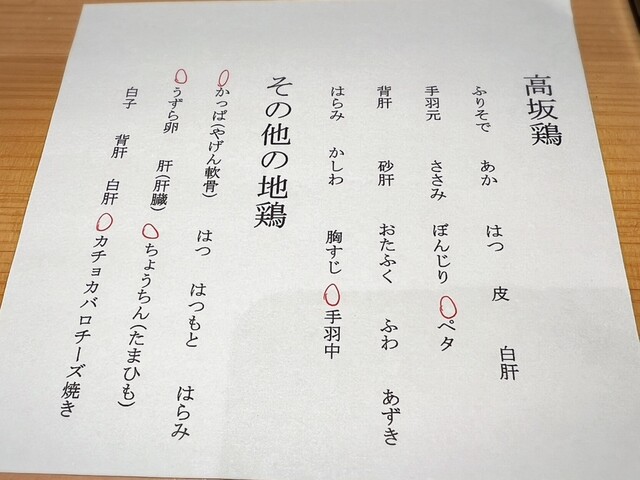 高坂鶏
ふりそで　あか　はつ　皮　白肝
手羽元　ささみ　ぼんじり　ペタ
背肝　砂肝　おたふく　ふわ　あずき
はらみ　かしわ　胸すじ　手羽中
その他の地鶏
かっぱ(やげん軟骨)　はつ　はつもと　はらみ
うずら卵　肝(肝臓)　ちょうちん(たまひも)
白子　背肝　白肝　カチョカバロチーズ焼き